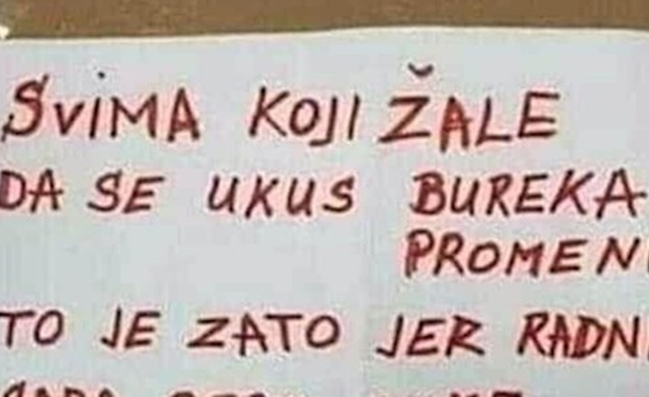 SVIMA KOJI ŽALE
DA SE UKUS BUREKA
PROMEN
TO JE ZATO JER RADN